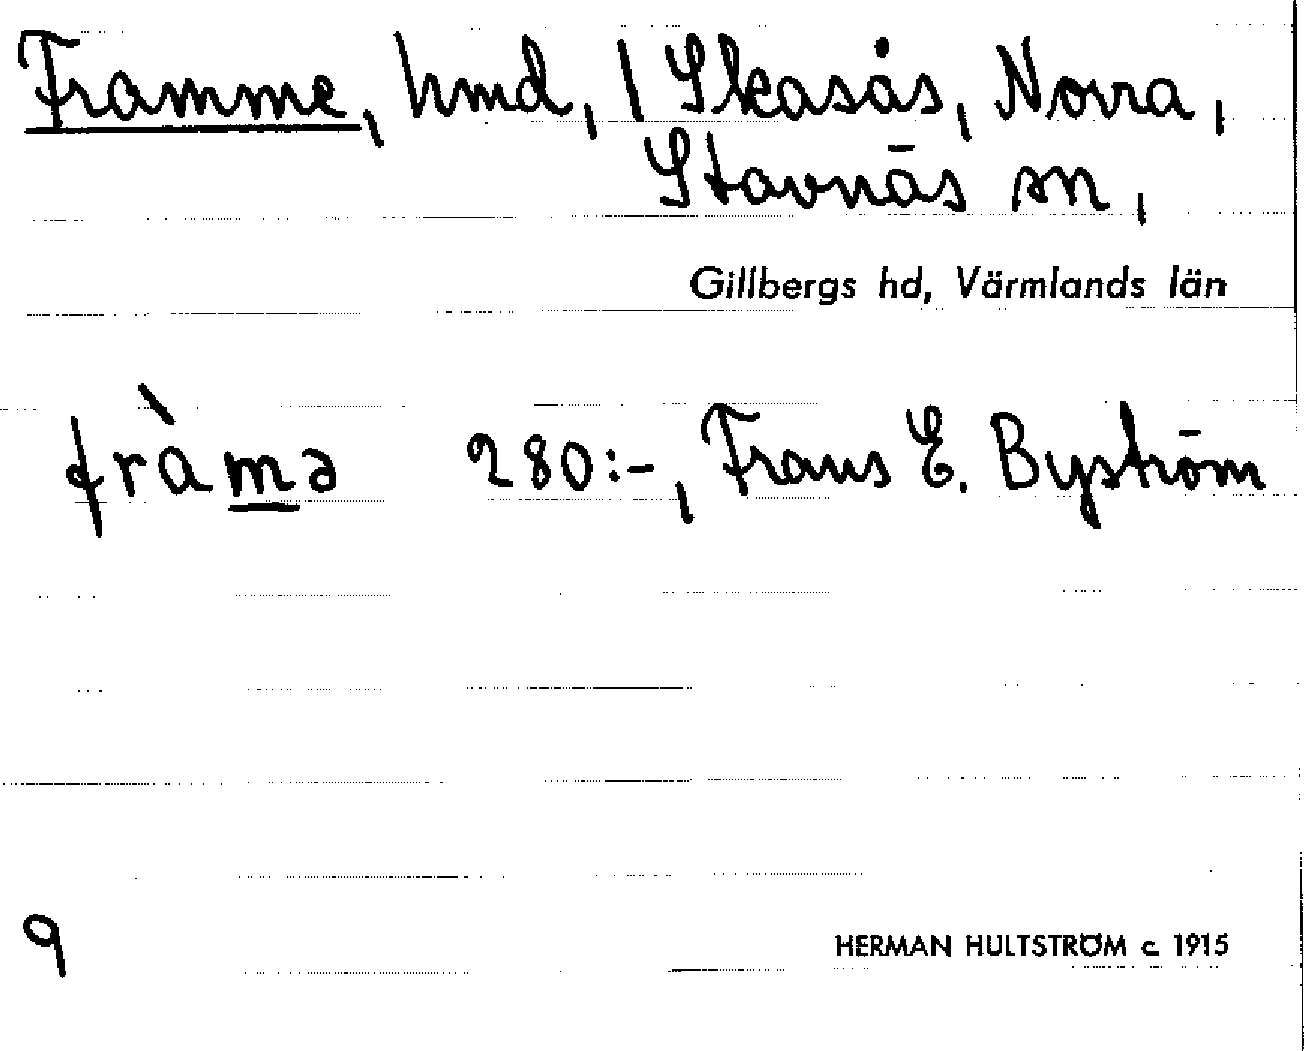 Framme, hmd, / Skasås, Norra,
Stavnäs sn,
Gillbergs hd, Värmlands län
fràmə 280:-, Frans E. Byström
9
HERMAN HULTSTRÖM c. 1915